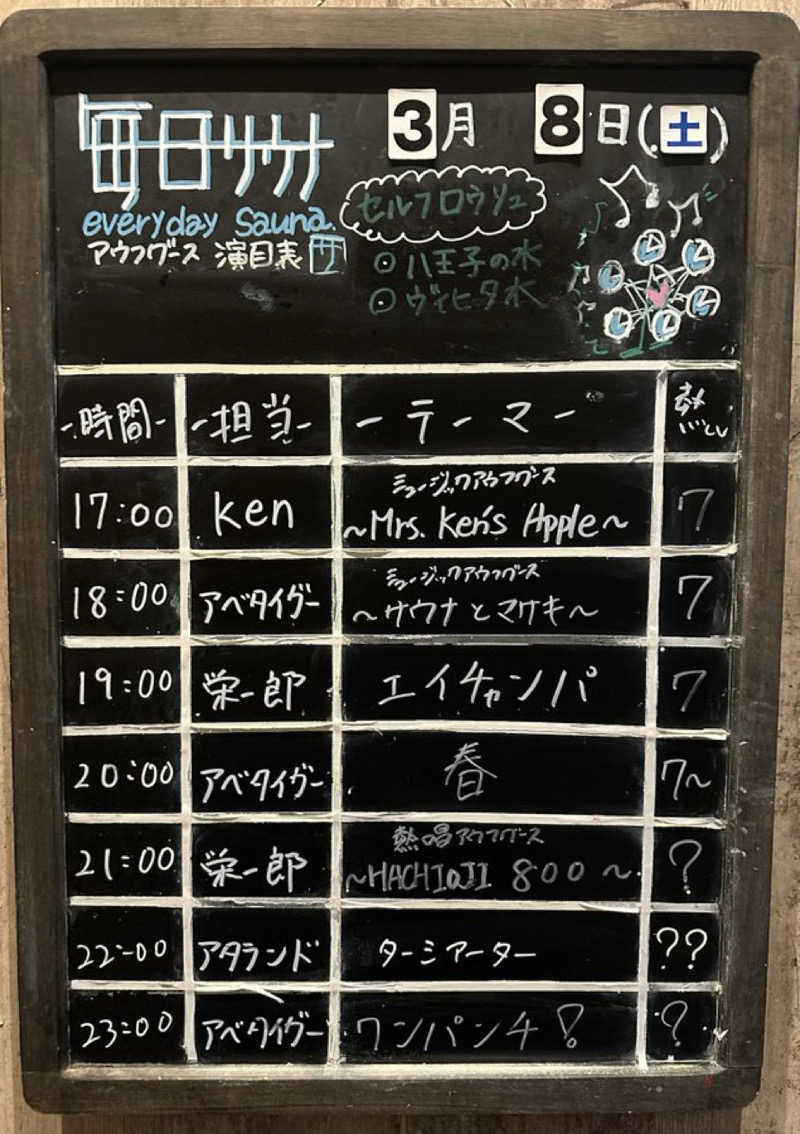 毎日サウナ
3月 8日(土)
everyday Sauna.
アウフグース 演目表 サ
セルフロウリュ
⊙八王子の水
⊙ヴィヒタ水
-時間- -担当- -テーマ- 熱いレベル
17:00 Ken ミュージックアウフグース ~Mrs. Ken's Apple~ 7
18:00 アベタイガー ミュージックアウフグース ~サウナとマサキ~ 7
19:00 栄一郎 エイチャンパ 7
20:00 アベタイガー 春 7~
21:00 栄一郎 熱唱アウフグース ~HACHIOJI 800~ ?
22:00 アタランド ターミアーター ??
23:00 アベタイガー ワンパンチ! ?